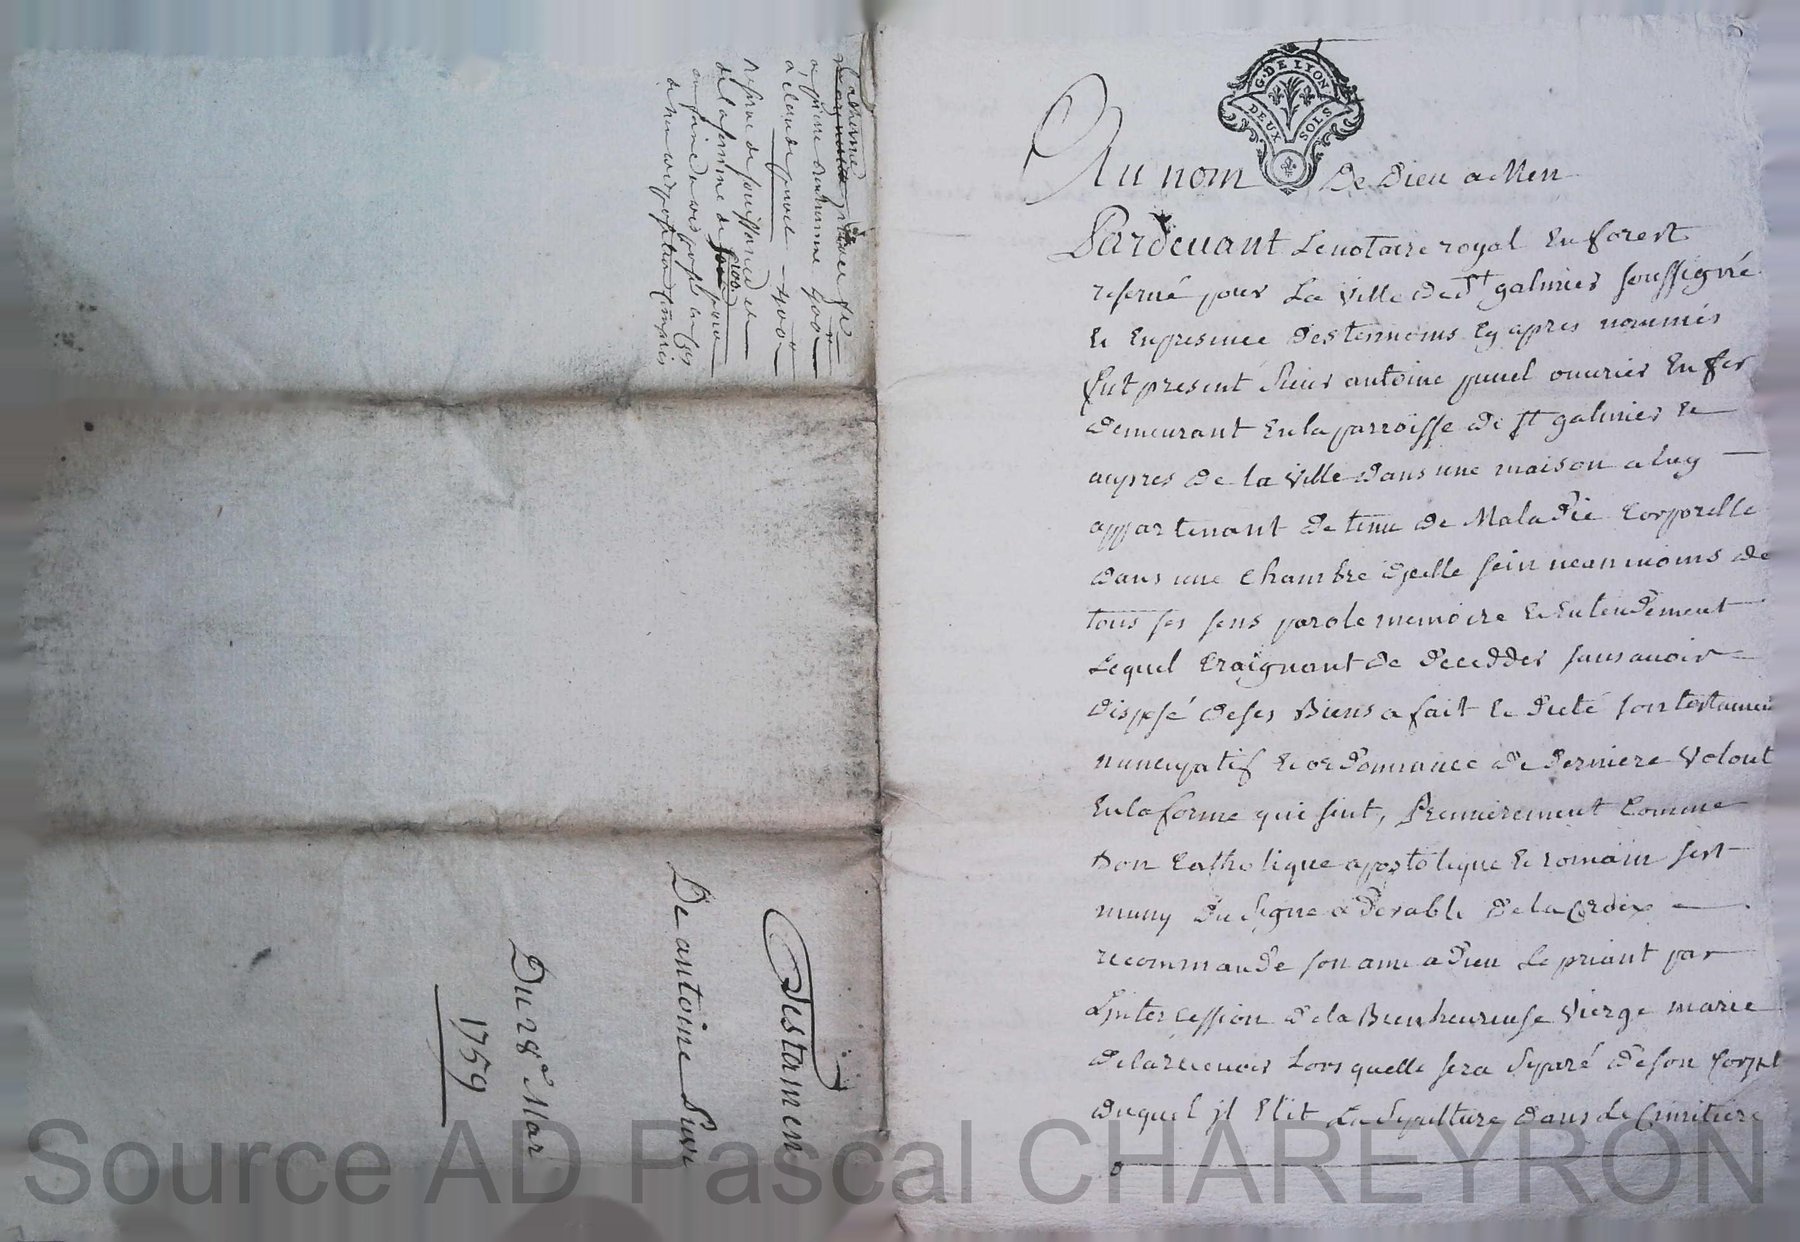 Testamen
De antoine
Du 28e Mar
1759
a pierre antoinne 400
a claude puvel 400
reserve de jouissance
de la somme de
100
G. DE LYON
DEUX SOLS
Au nom De Dieu aMen
Pardevant Le notaire royal En forest
reservé pour La Ville de St galmier soussigné
Et En presence Des temoins Cy apres nommés
fut present Sieur antoine puvel ouvrier En fer
demeurant En la parroisse de St galmier Et
aupres de la Ville dans une maison a luy
appartenant detenu de Maladie Corporelle
dans une Chambre dycelle sein neanmoins de
tous ses sens parole memoire Et Entendement
Lequel Craignant de decedder sans avoir
disposé de ses Biens a fait Et dicté son testamen
nuncupatif Et ordonnance de derniere Volont
En la forme qui suit, Premierement Comme
bon Catholique apostolique Et romain s'est
muny du signe adorable de la Croix
recommande son ame a dieu Le priant par
L'intercession de la Bienheureuse Vierge marie
de la recevoir Lors quelle sera Separé de son Corps
duquel jl Elit La Sepulture dans Le Cimitiere
Source AD Pascal CHAREYRON